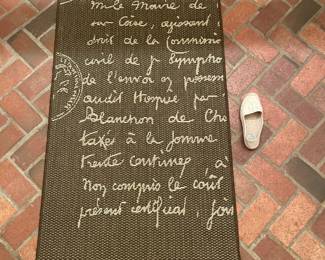 M. le Maire de
Oise, agissant
droit de la Commissio
civil de
de l'envoi
audit Hospice par
Blanchon de Cha
taxés à la somme
trente centimes à
non compris le coût
présent certificat,